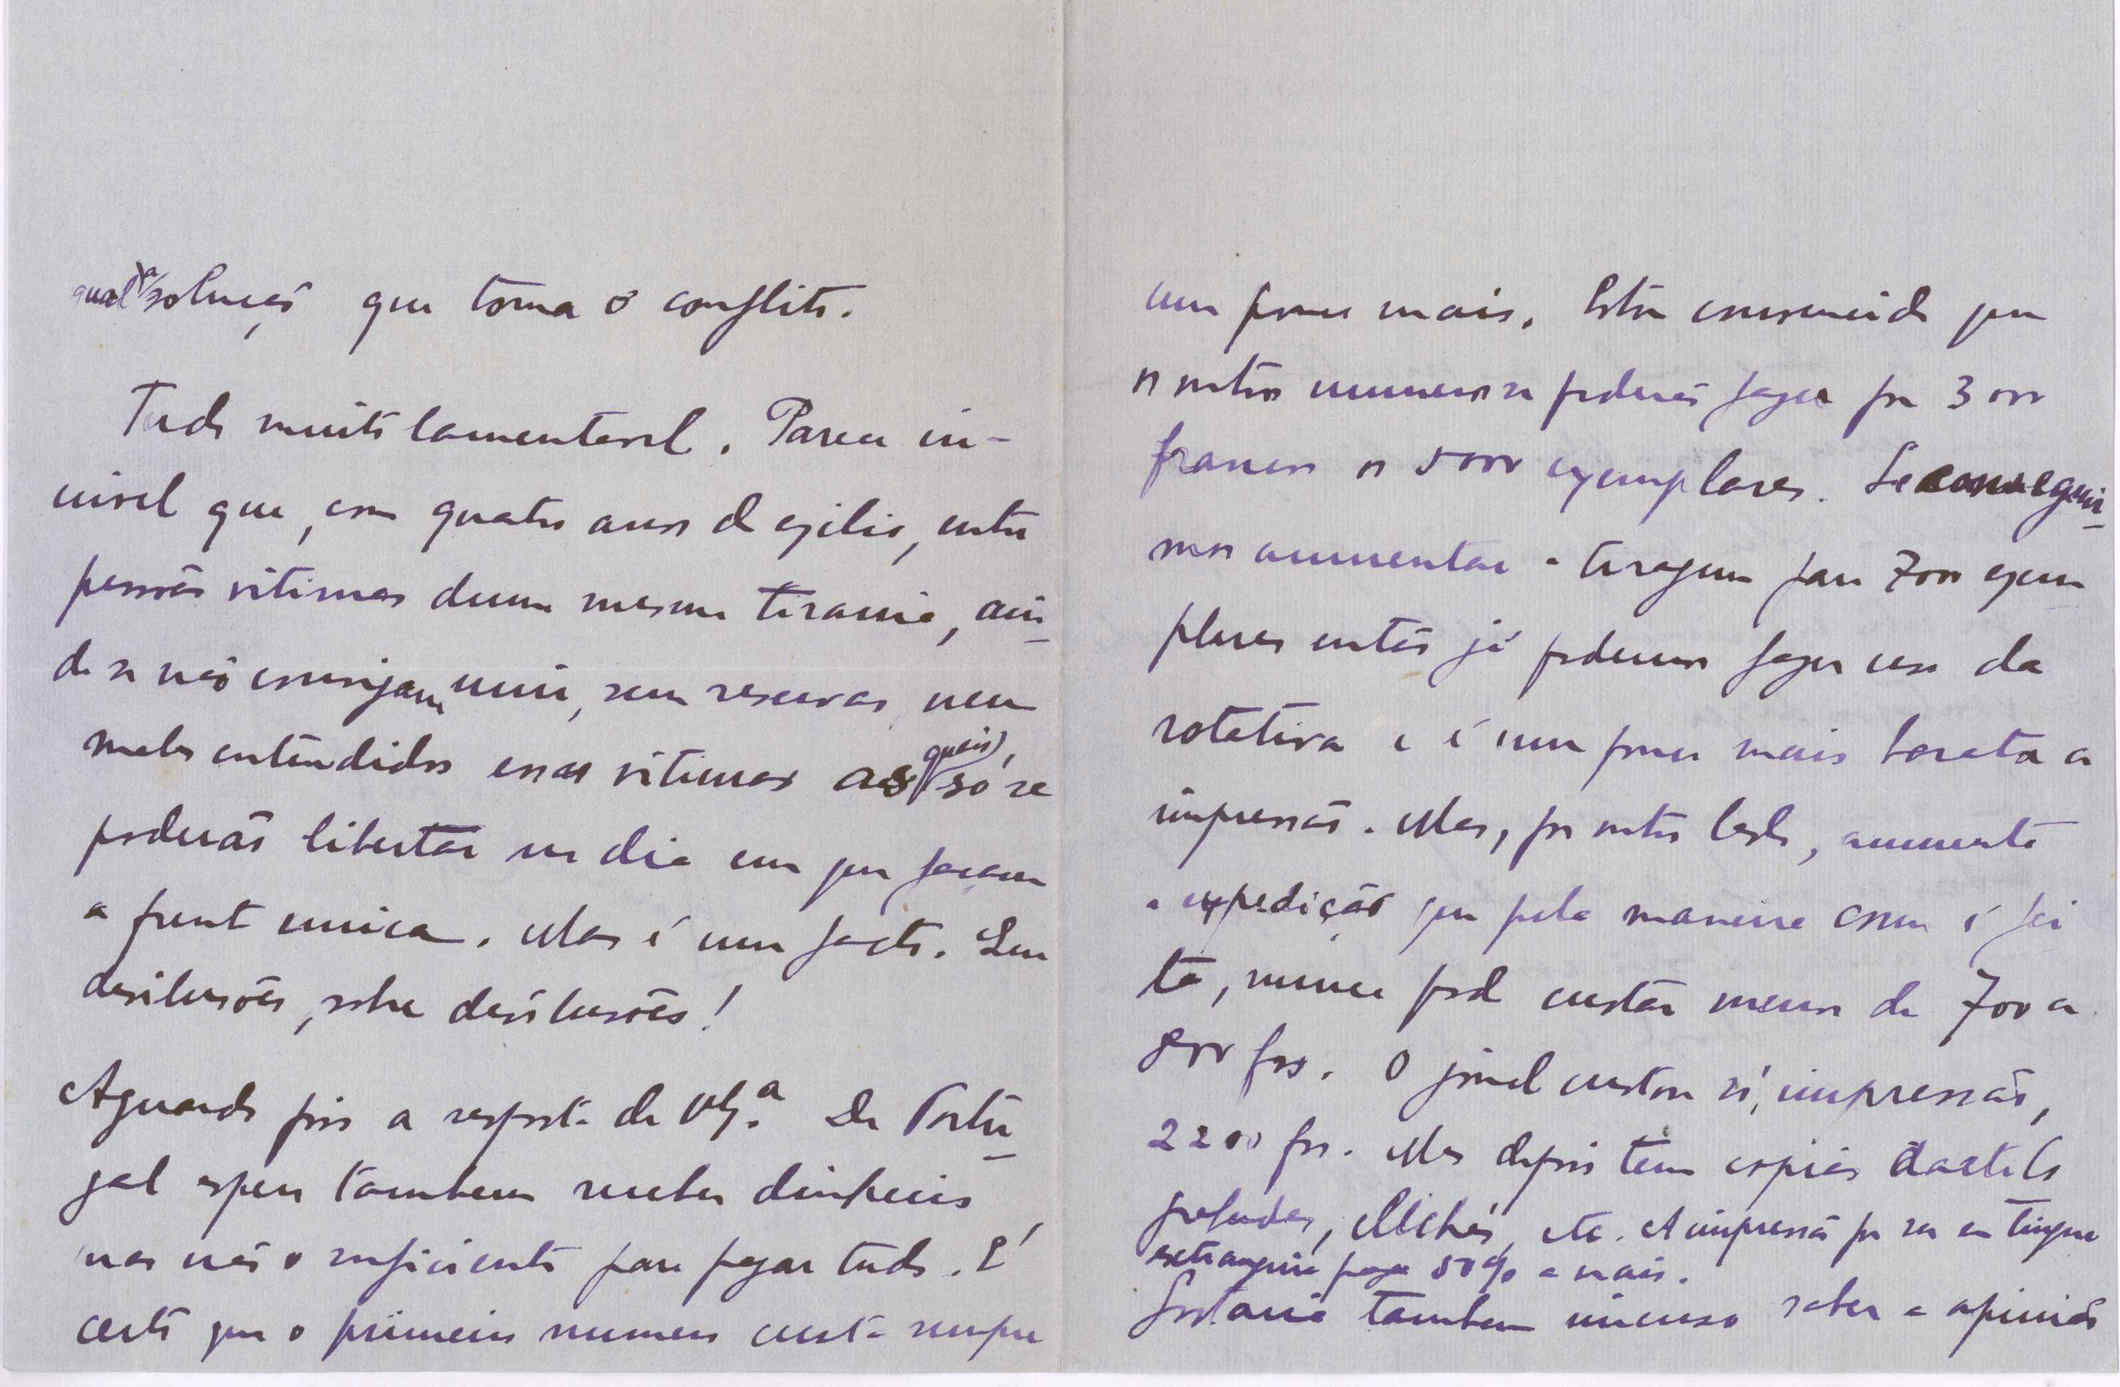 qual a solução que toma o conflito.
Tudo muito lamentavel. Parece in-
crivel que, com quatro anos de exilio, entre
pessoas vitimas duma mesma tirania, ain-
da se não consigam unir, sem reservas nem
mal entendidos essas vitimas as quais só se
poderão libertar no dia em que façam
a frente unica. Mas é um facto. Sem
desilusões, sobre desilusões!
Aguardo pois a resposta de V. Ex.ª De Portu-
gal espero tambem receber dinheiro
mas não o suficiente para pagar tudo. É
certo que o primeiro numero custa sempre
um pouco mais. Estou convencido que
os outros numeros se poderão fazer por 3000
francos os 5000 exemplares. Se conseguir-
mos aumentar a tiragem para 7000 exem
plares então já podemos fazer uso da
rotativa e é um pouco mais barata a
impressão. Mas, por outro lado, aumenta
a expedição que pela maneira como é fei
ta, nunca pode custar menos de 700 a
800 frs. O jornal custou só, impressão,
2200 frs. Mas depois tem copias dactilo
grafadas, clichés, etc. A impressão por ser em lingua
extrangeira paga 50% a mais.
Gostaria tambem imenso saber a opinião